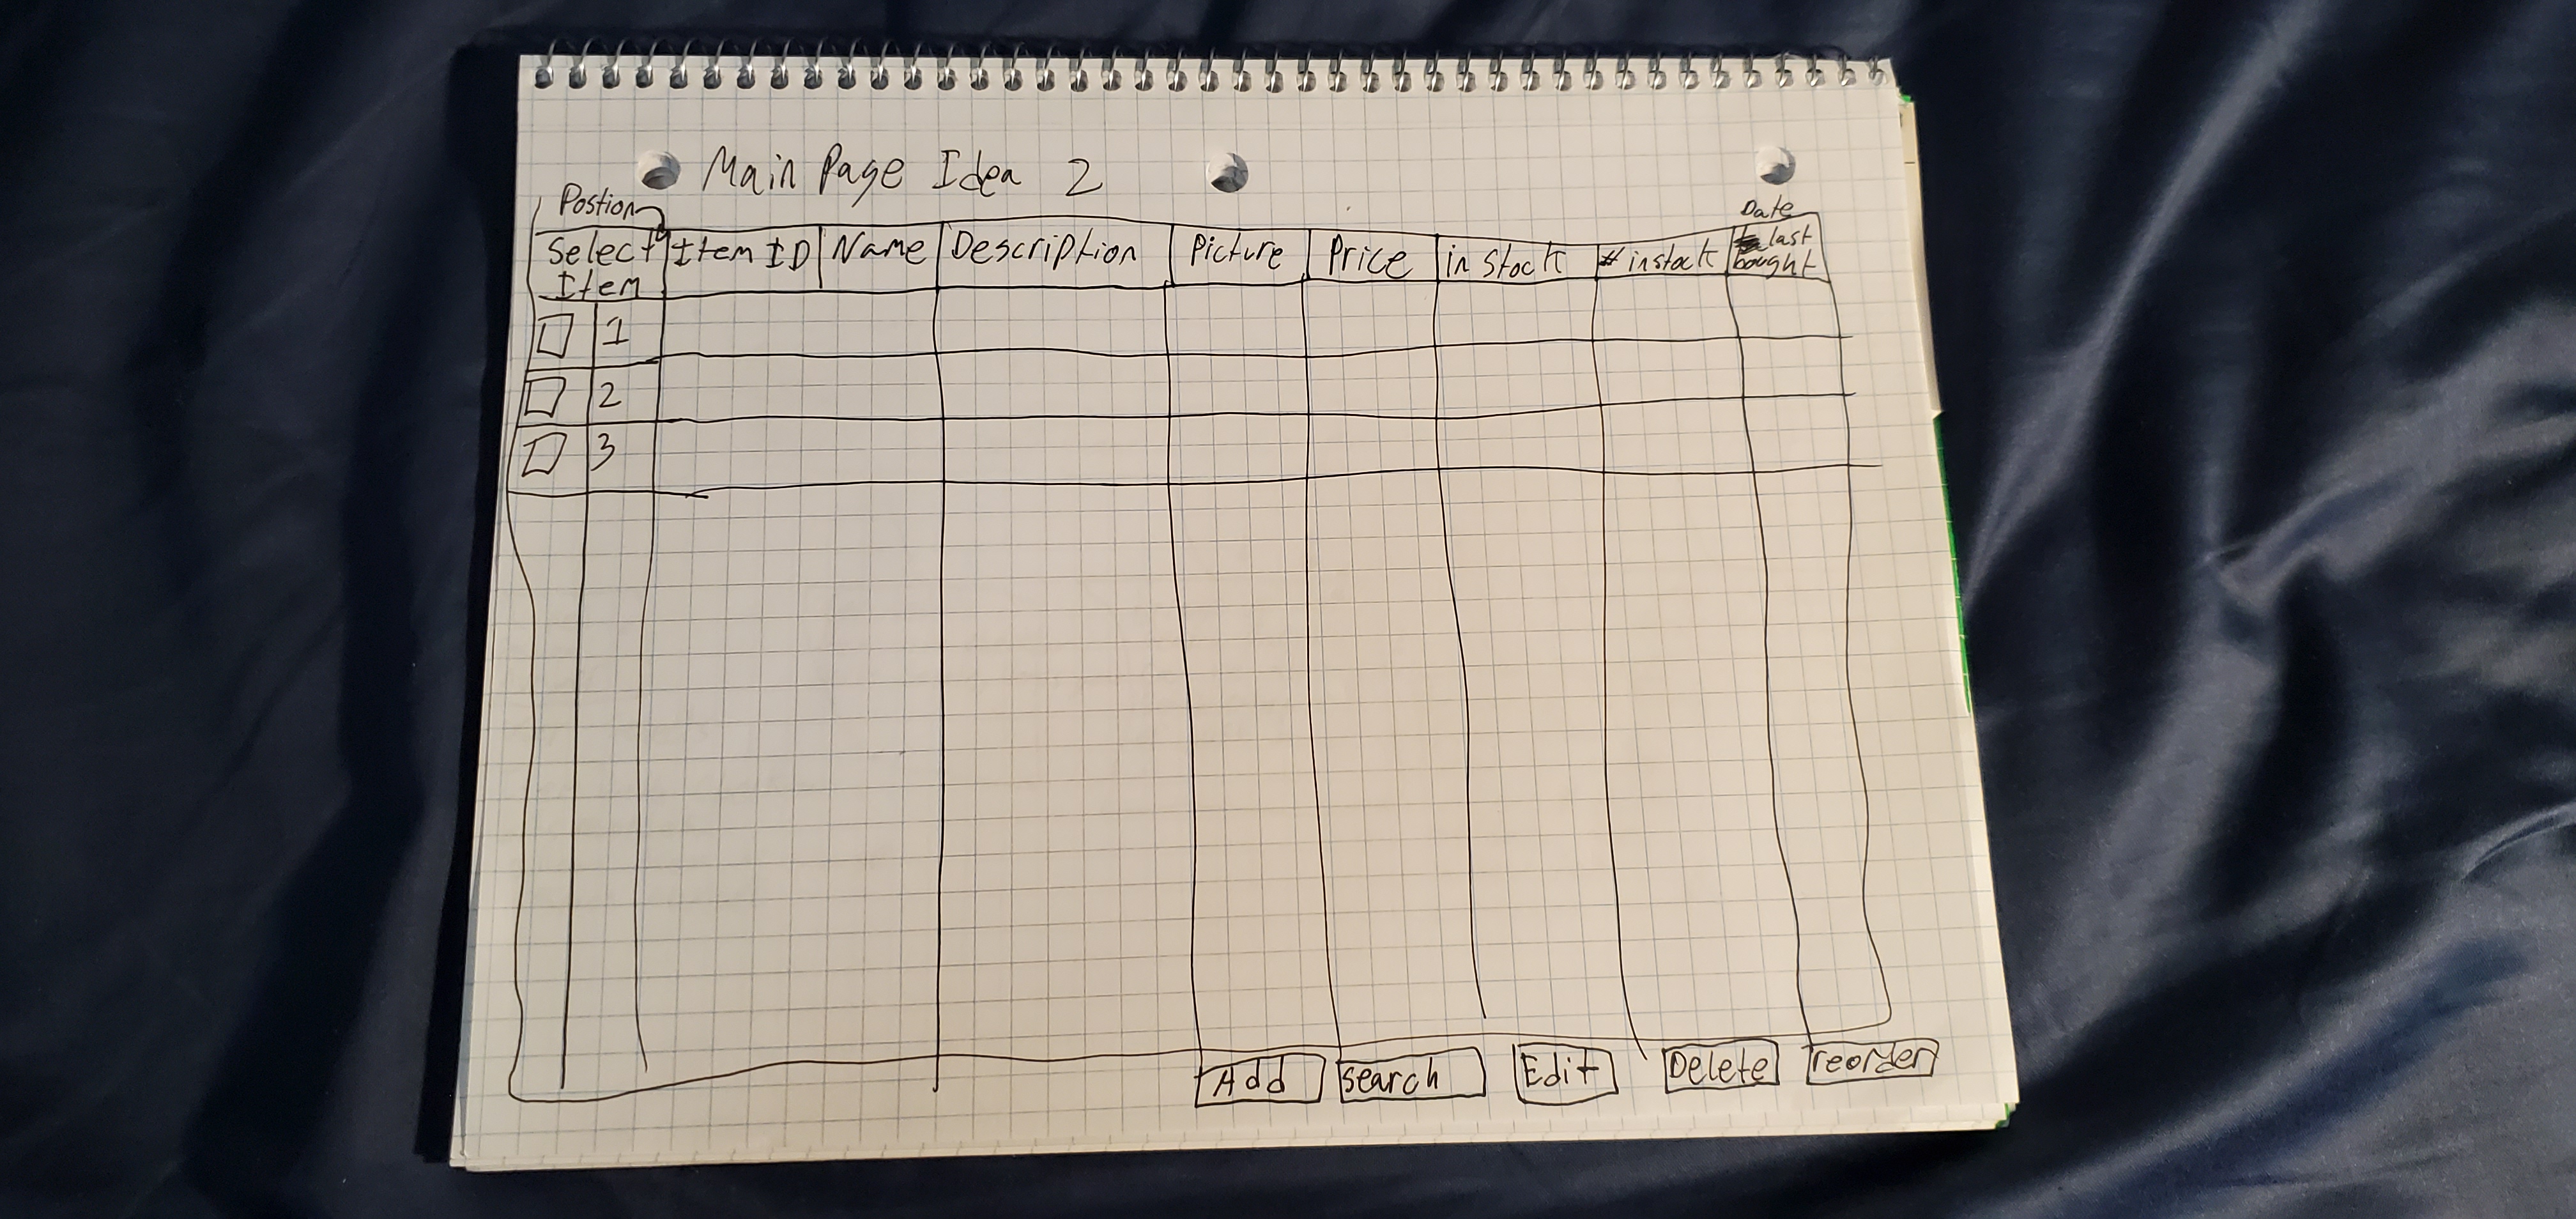 Main Page Idea 2
Postion
Date
Select Item
Item ID
Name
Description
Picture
Price
in stock
# instock
last bought
1
2
3
Add
Search
Edit
Delete
reorder